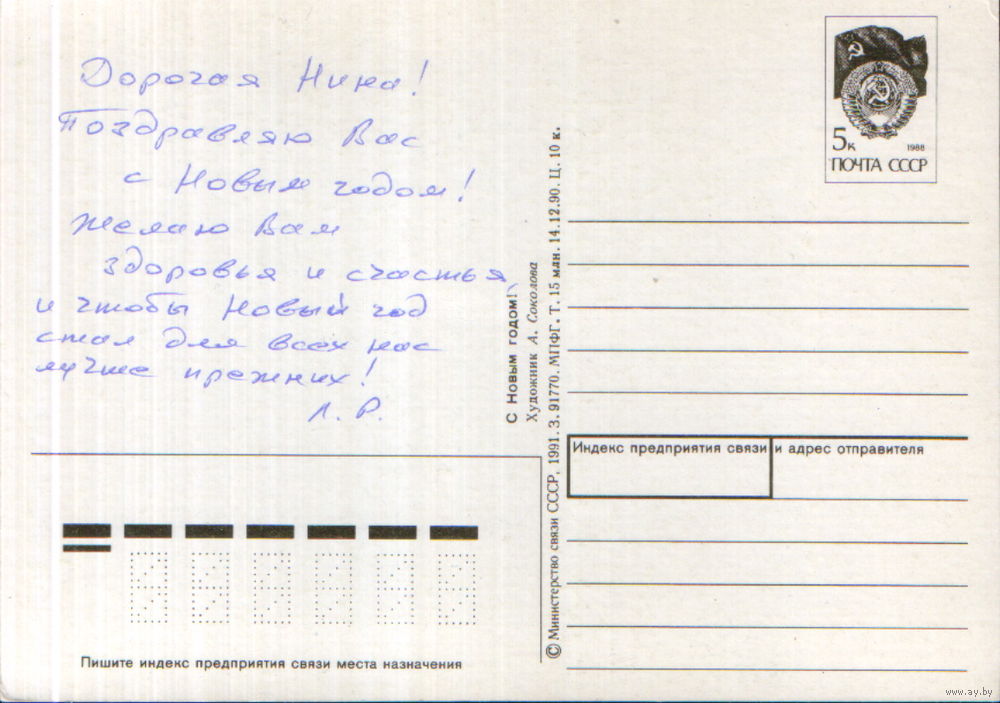 Дорогая Нина!
Поздравляю Вас
с Новым годом!
Желаю Вам
здоровья и счастья,
и чтобы Новый год
стал для всех нас
лучше прежних!
Л. Р.
Пишите индекс предприятия связи места назначения
С Новым годом!
Художник А. Соколова
© Министерство связи СССР, 1991. З. 91770. МПФГ. Т. 15 млн. 14.12.90. Ц. 10 к.
5к
1988
ПОЧТА СССР
Индекс предприятия связи и адрес отправителя
www.ay.by